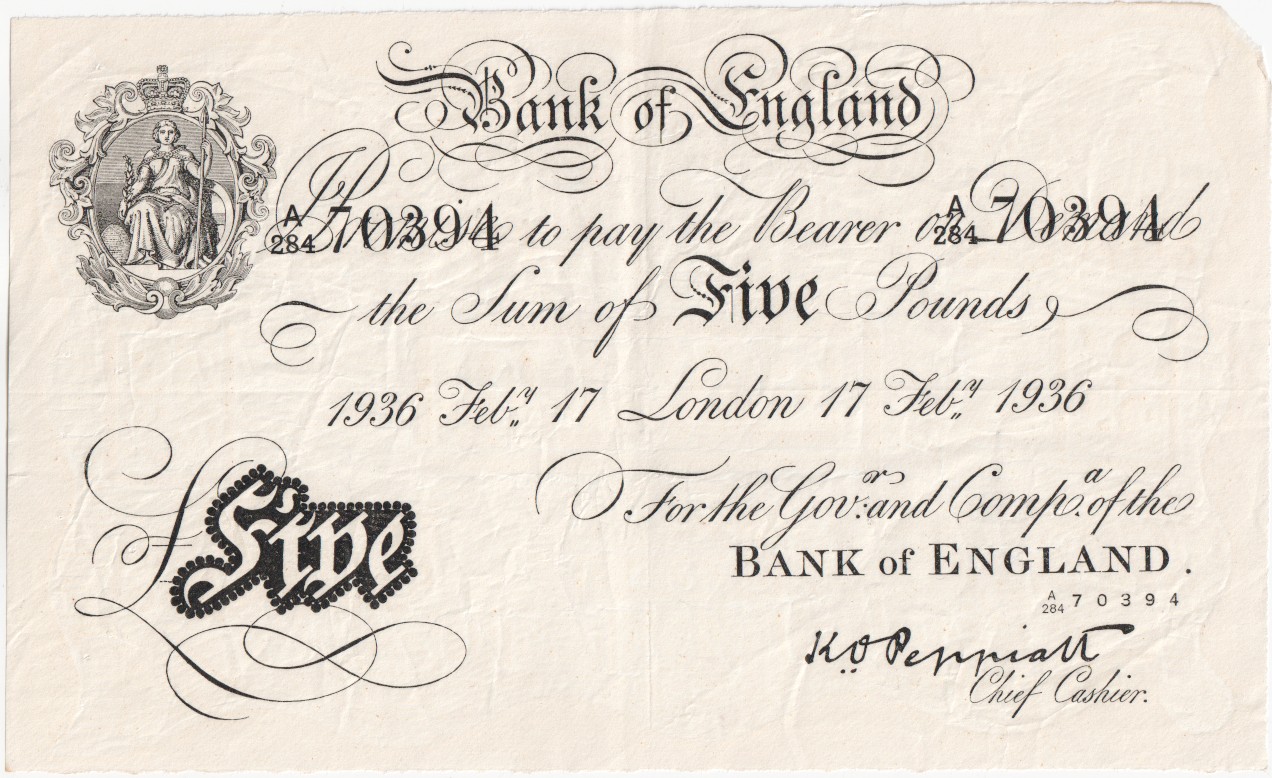 Bank of England
I Promise to pay the Bearer on Demand
A/284 70394 A/284 70394
the Sum of Five Pounds
1936 Feb.y 17 London 17 Feb.y 1936
For the Gov.r and Comp.a of the
BANK of ENGLAND.
£ Five
A/284 70394
K.O. Peppiatt
Chief Cashier.